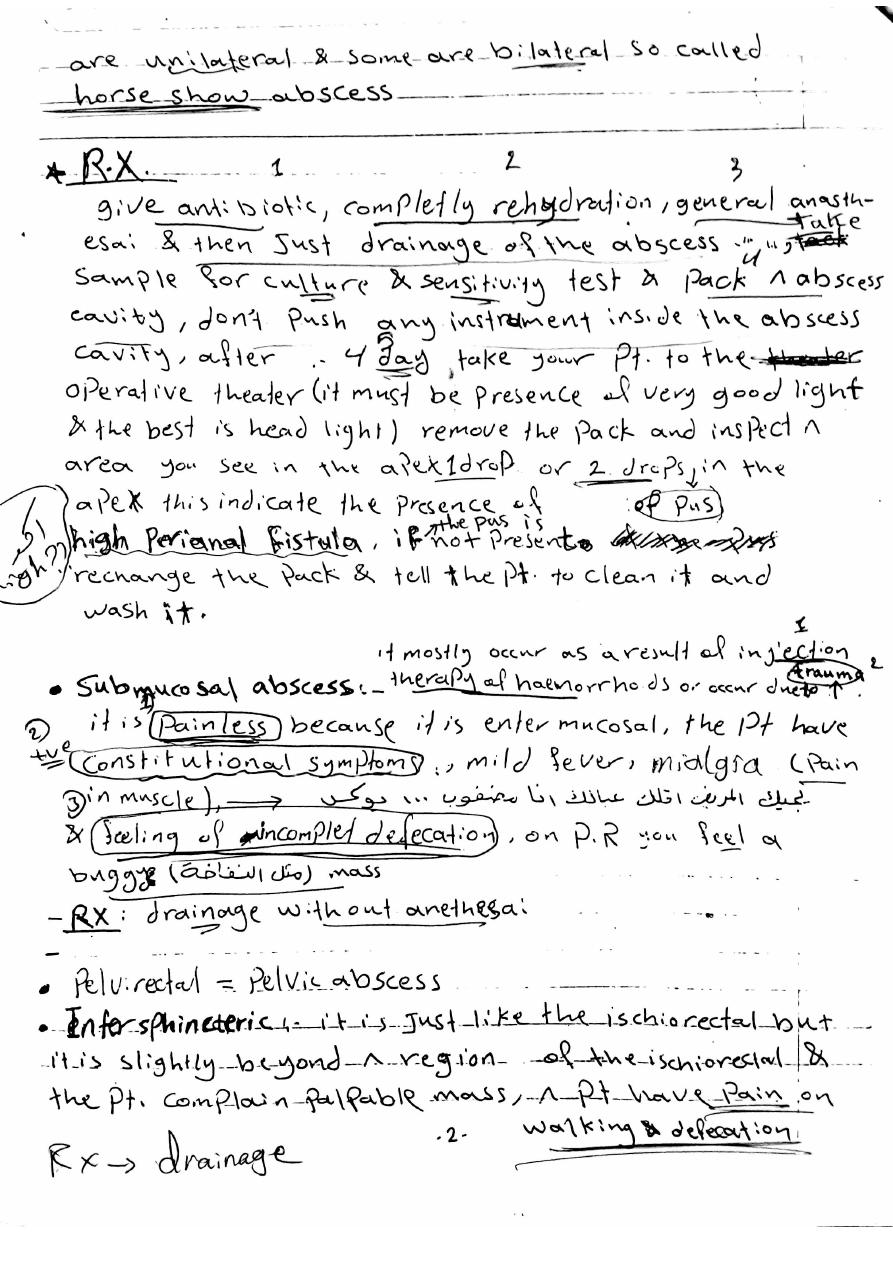 are unilateral & some are bilateral so called
horse show abscess
* R.X. 1 2 3
give antibiotic, completly rehydration, general anasth-
esai & then Just drainage of the abscess ..., take
4
Sample for culture & sensitivity test & Pack ^ abscess
cavity, don't Push any instrument inside the abscess
cavity, after .. 4 day take your Pt. to the
operative theater (it must be presence of very good light
& the best is head light) remove the Pack and inspect ^
area you see in the apex 1 drop or 2 drops in the
of pus
apex this indicate the presence of
high Perianal Fistula, if the pus is not present
rechange the Pack & tell the Pt. to clean it and
wash it.
it mostly occur as a result of injection 1
• Submucosal abscess:- therapy of haemorrhoids or occur due to ↑ trauma 2
1) it is Painless because it is enter mucosal, the Pt have
2) +ve Constitutional symptoms, mild fever, mialgia (Pain
3) in muscle), → يجيك المريض اقلك عبالك انا ...
& feeling of incomplet defecation, on P.R you feel a
buggy (مثل النفاخة) mass
- RX: drainage without anethesai
-
• Pelvirectal = Pelvic abscess
• Infersphincteric :- it is Just like the ischiorectal but
it is slightly beyond ^ region of the ischiorestal &
the Pt. complain palpable mass, ^ Pt have Pain on
walking & defecation
-2-
Rx → drainage